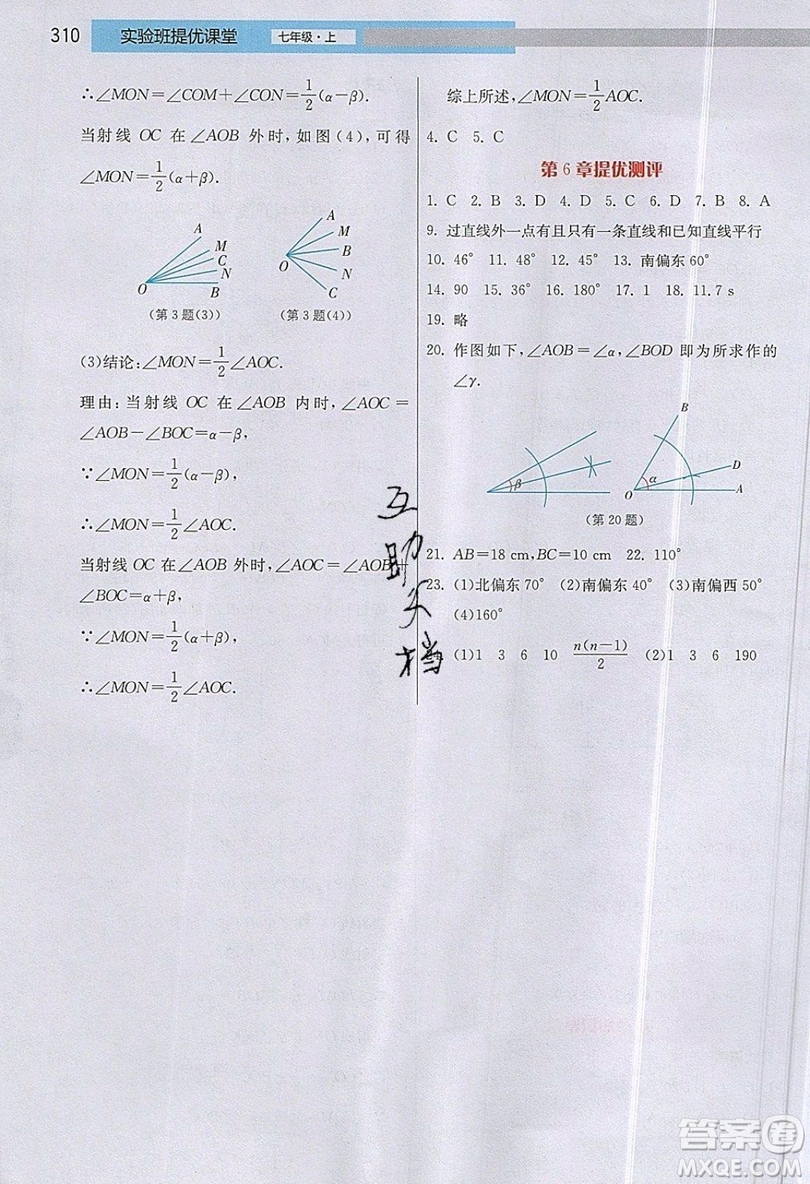 310 实验班提优课堂 七年级·上
∴∠MON=∠COM+∠CON=1/2(α−β).
当射线 OC 在∠AOB 外时,如图(4),可得
∠MON=1/2(α+β).
A
M
C
N
B
O
(第 3 题(3))
A
M
B
N
C
O
(第 3 题(4))
(3)结论:∠MON=1/2∠AOC.
理由:当射线 OC 在∠AOB 内时,∠AOC=
∠AOB−∠BOC=α−β,
∵∠MON=1/2(α−β),
∴∠MON=1/2∠AOC.
当射线 OC 在∠AOB 外时,∠AOC=∠AOB+
∠BOC=α+β,
∵∠MON=1/2(α+β),
∴∠MON=1/2∠AOC.
综上所述,∠MON=1/2AOC.
4. C 5. C
第 6 章提优测评
1. C 2. B 3. D 4. D 5. C 6. D 7. D 8. A
9. 过直线外一点有且只有一条直线和已知直线平行
10. 46° 11. 48° 12. 45° 13. 南偏东 60°
14. 90 15. 8 16. 180° 17. 1 18. 11.7 s
19. 略
20. 作图如下,∠AOB=∠α,∠BOD 即为所求作的
∠γ.
β
B
D
α
O
A
(第 20 题)
21. AB=18 cm,BC=10 cm 22. 110°
23. (1)北偏东 70° (2)南偏东 40° (3)南偏西 50°
(4)160°
(1)1 3 6 10 n(n−1)/2 (2)1 3 6 190
互
助
文
档
答案圈
MXQE.COM